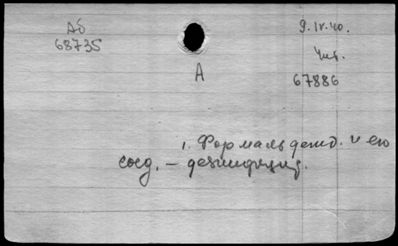 Аб
68735
9.IV.40.
Чит.
А
67886
1. Формальдегид. и его
соед. – дезинфекция.